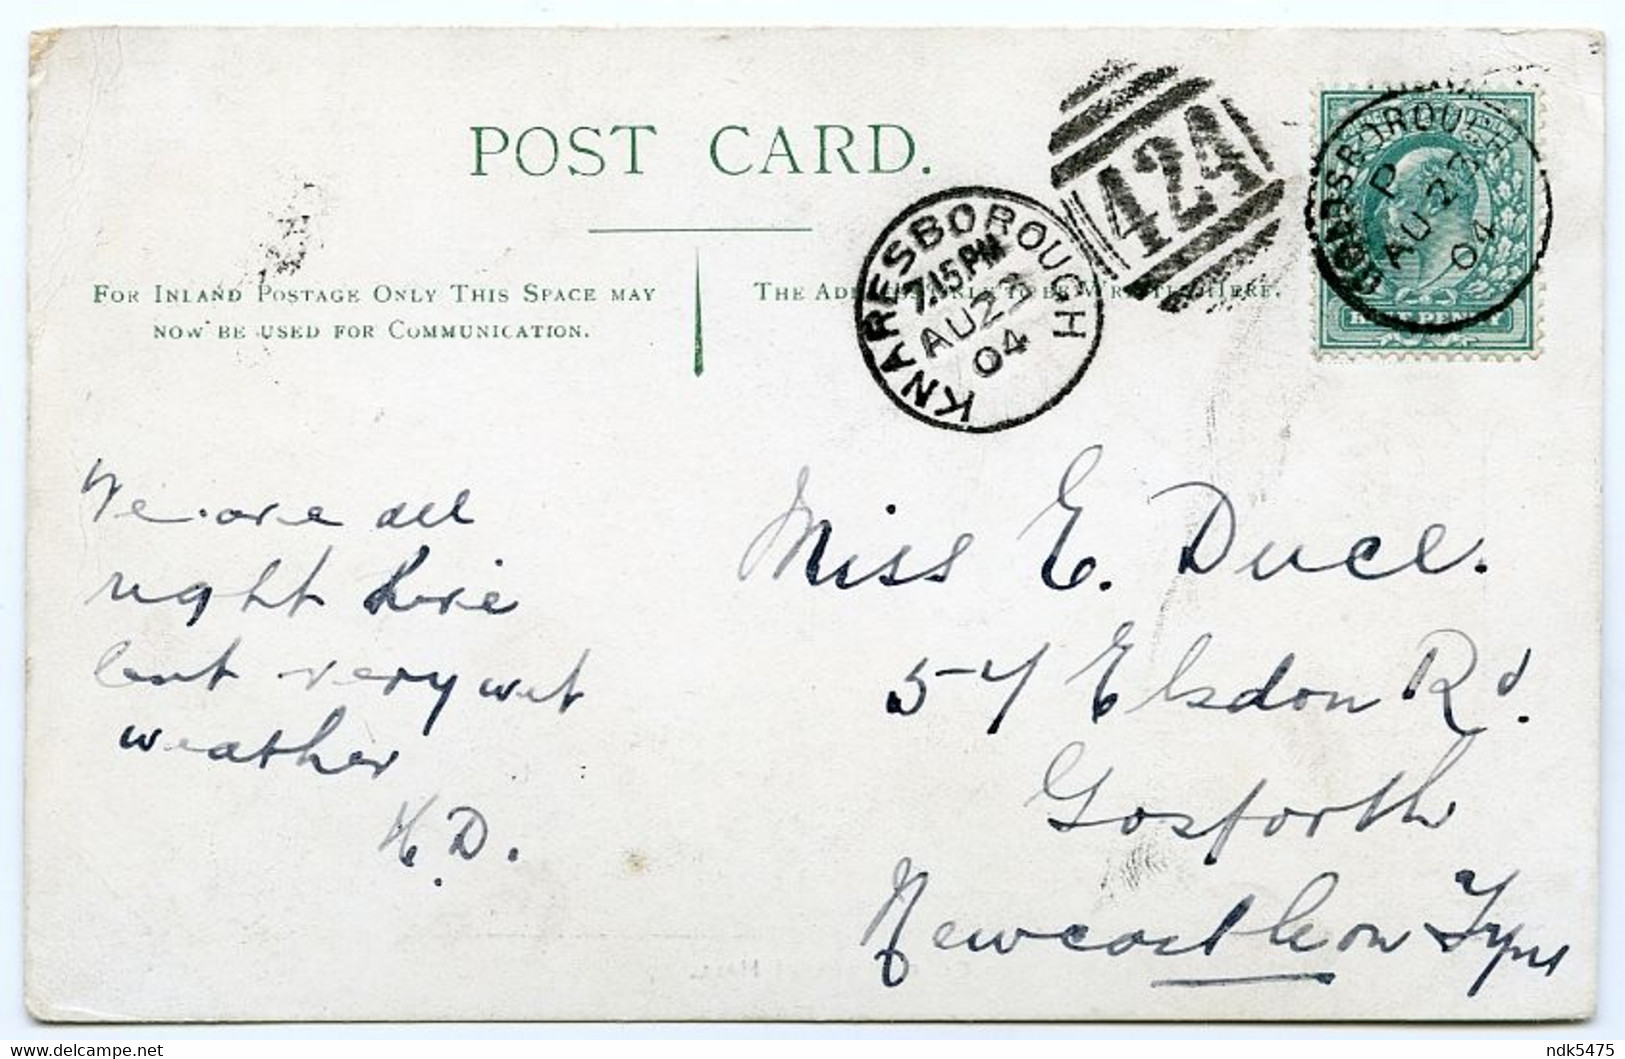 POST CARD.
424
KNARESBOROUGH
7.15 PM
AU 23
04
P
AU 23
04
HALF PENNY
FOR INLAND POSTAGE ONLY THIS SPACE MAY
NOW BE USED FOR COMMUNICATION.
THE ADDRESS ONLY TO BE WRITTEN HERE.
We are all
right here
but very wet
weather
H.D.
Miss E. Duce.
57 Elsdon Rd.
Gosforth
Newcastle on Tyne
ndk5475